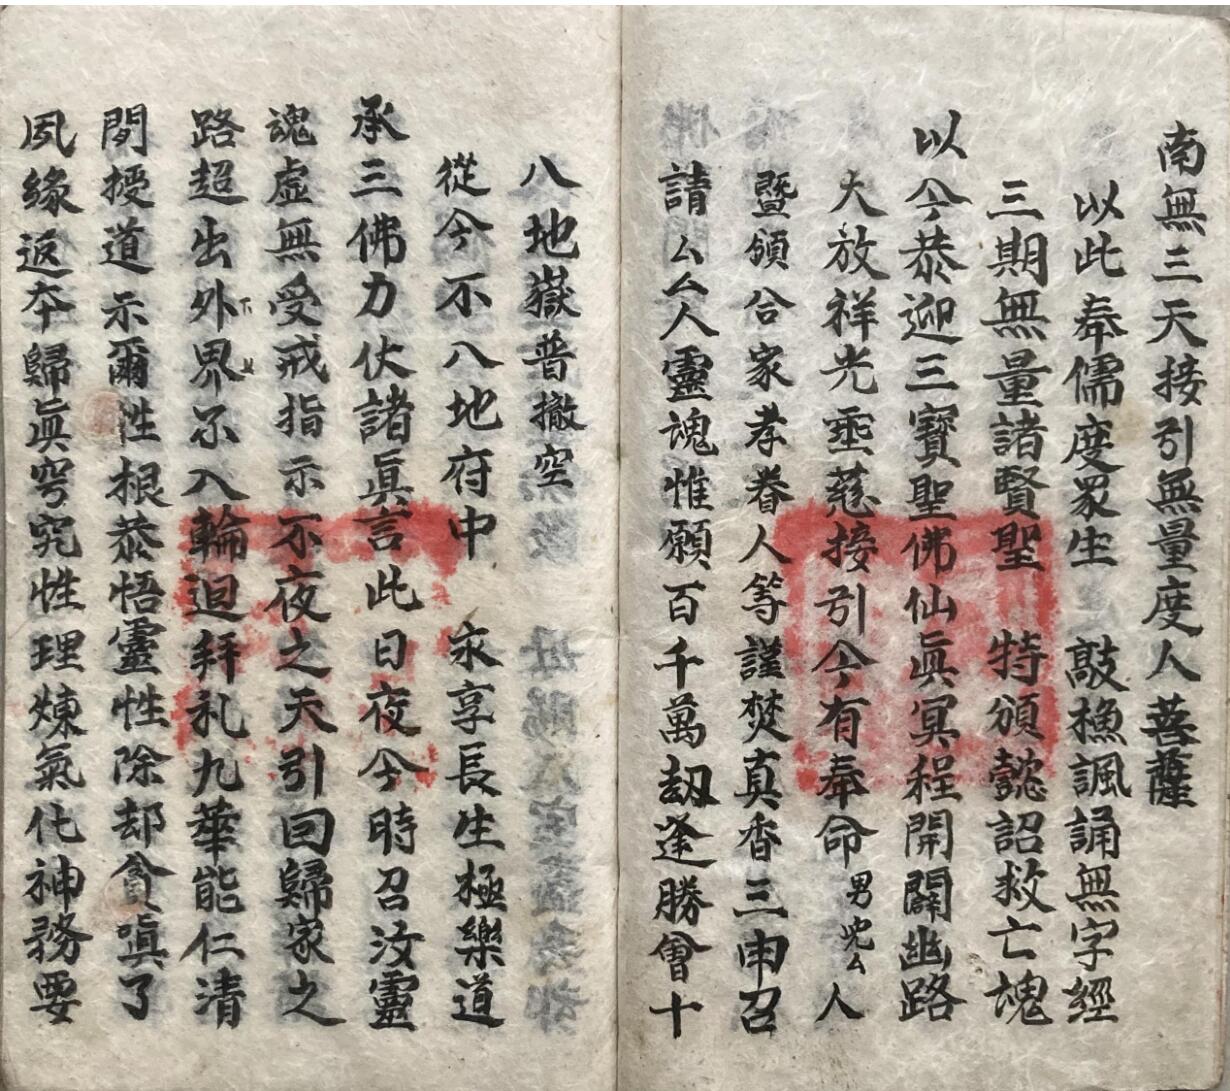 南無三天接引無量度人菩薩
以此奉儒度眾生 敲樵諷誦無字經
三期無量諸賢聖 特頒懿詔救亡魂
以今恭迎三寶聖佛仙眞冥程開闢幽路
大放祥光垂慈接引今有奉命男兜厶人
暨領合家孝眷人等謹焚真香三申召
請厶厶人靈魂惟願百千萬劫逢勝會十
八地嶽普撤空
從今不入地府中 永享長生極樂道
承三佛力伏諸眞言此日夜今時召汝靈
魂虛無受戒指示不夜之天引回歸家之
路超出外界不入輪迴拜礼九華能仁清
閒授道示爾性根恭悟靈性除却貪嗔了
夙緣返夲歸眞穹究性理煉氣化神務要